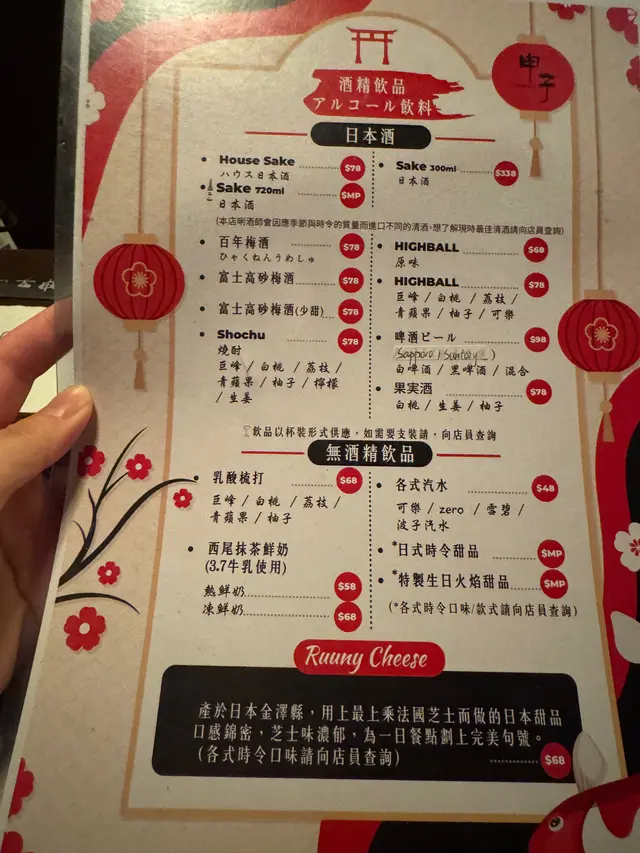 申子
酒精飲品
アルコール飲料
日本酒
House Sake $78
ハウス日本酒
Sake 720ml $MP
日本酒
Sake 300ml $338
日本酒
(本店唎酒師會因應季節與時令的質量而進口不同的清酒,想了解現時最佳清酒請向店員查詢)
百年梅酒 $78
ひゃくねんうめしゅ
富士高砂梅酒 $78
富士高砂梅酒(少甜) $78
Shochu $78
燒酎
巨峰 / 白桃 / 荔枝 /
青蘋果 / 柚子 / 檸檬
/ 生姜
HIGHBALL $68
原味
HIGHBALL $78
巨峰 / 白桃 / 荔枝 /
青蘋果 / 柚子 / 可樂
啤酒ビール $98
Sapporo / Suntory )
白啤酒 / 黑啤酒 / 混合
果実酒 $78
白桃 / 生姜 / 柚子
飲品以杯裝形式供應，如需要支裝請，向店員查詢
無酒精飲品
乳酸梳打 $68
巨峰 / 白桃 / 荔枝 /
青蘋果 / 柚子
西尾抹茶鮮奶
(3.7牛乳使用)
熱鮮奶 $58
凍鮮奶 $68
各式汽水 $48
可樂 / zero / 雪碧 /
波子汽水
*日式時令甜品 $MP
*特製生日火焰甜品 $MP
(*各式時令口味/款式請向店員查詢)
Ruuny Cheese
產於日本金澤縣，用上最上乘法國芝士而做的日本甜品
口感綿密，芝士味濃郁，為一日餐點劃上完美句號。
(各式時令口味請向店員查詢) $68